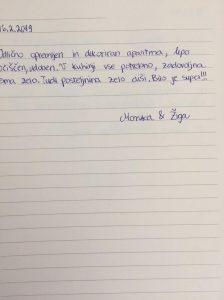 16.2.2019
Odlično opremljen in dekoriran apartma, lepo
očiščen, udoben. V kuhinji vse potrebno, zadovoljna
sma zelo. Tudi posteljnina zelo diši. Bilo je super!!!
Monika & Žiga